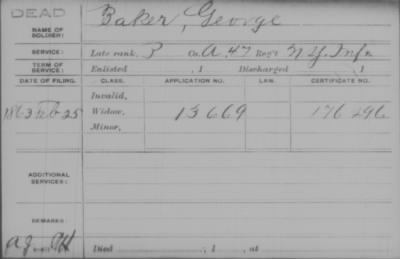 DEAD
NAME OF SOLDIER: Baker, George
SERVICE: Late rank, P Co. A, 47 Reg't N.Y. Inf.
TERM OF SERVICE: Enlisted , 1 Discharged , 1
DATE OF FILING. CLASS. APPLICATION NO. LAW. CERTIFICATE NO.
Invalid,
1863 Feb 25 Widow, 13669 176296
Minor,
ADDITIONAL SERVICES:
REMARKS:
Died , 1 , at